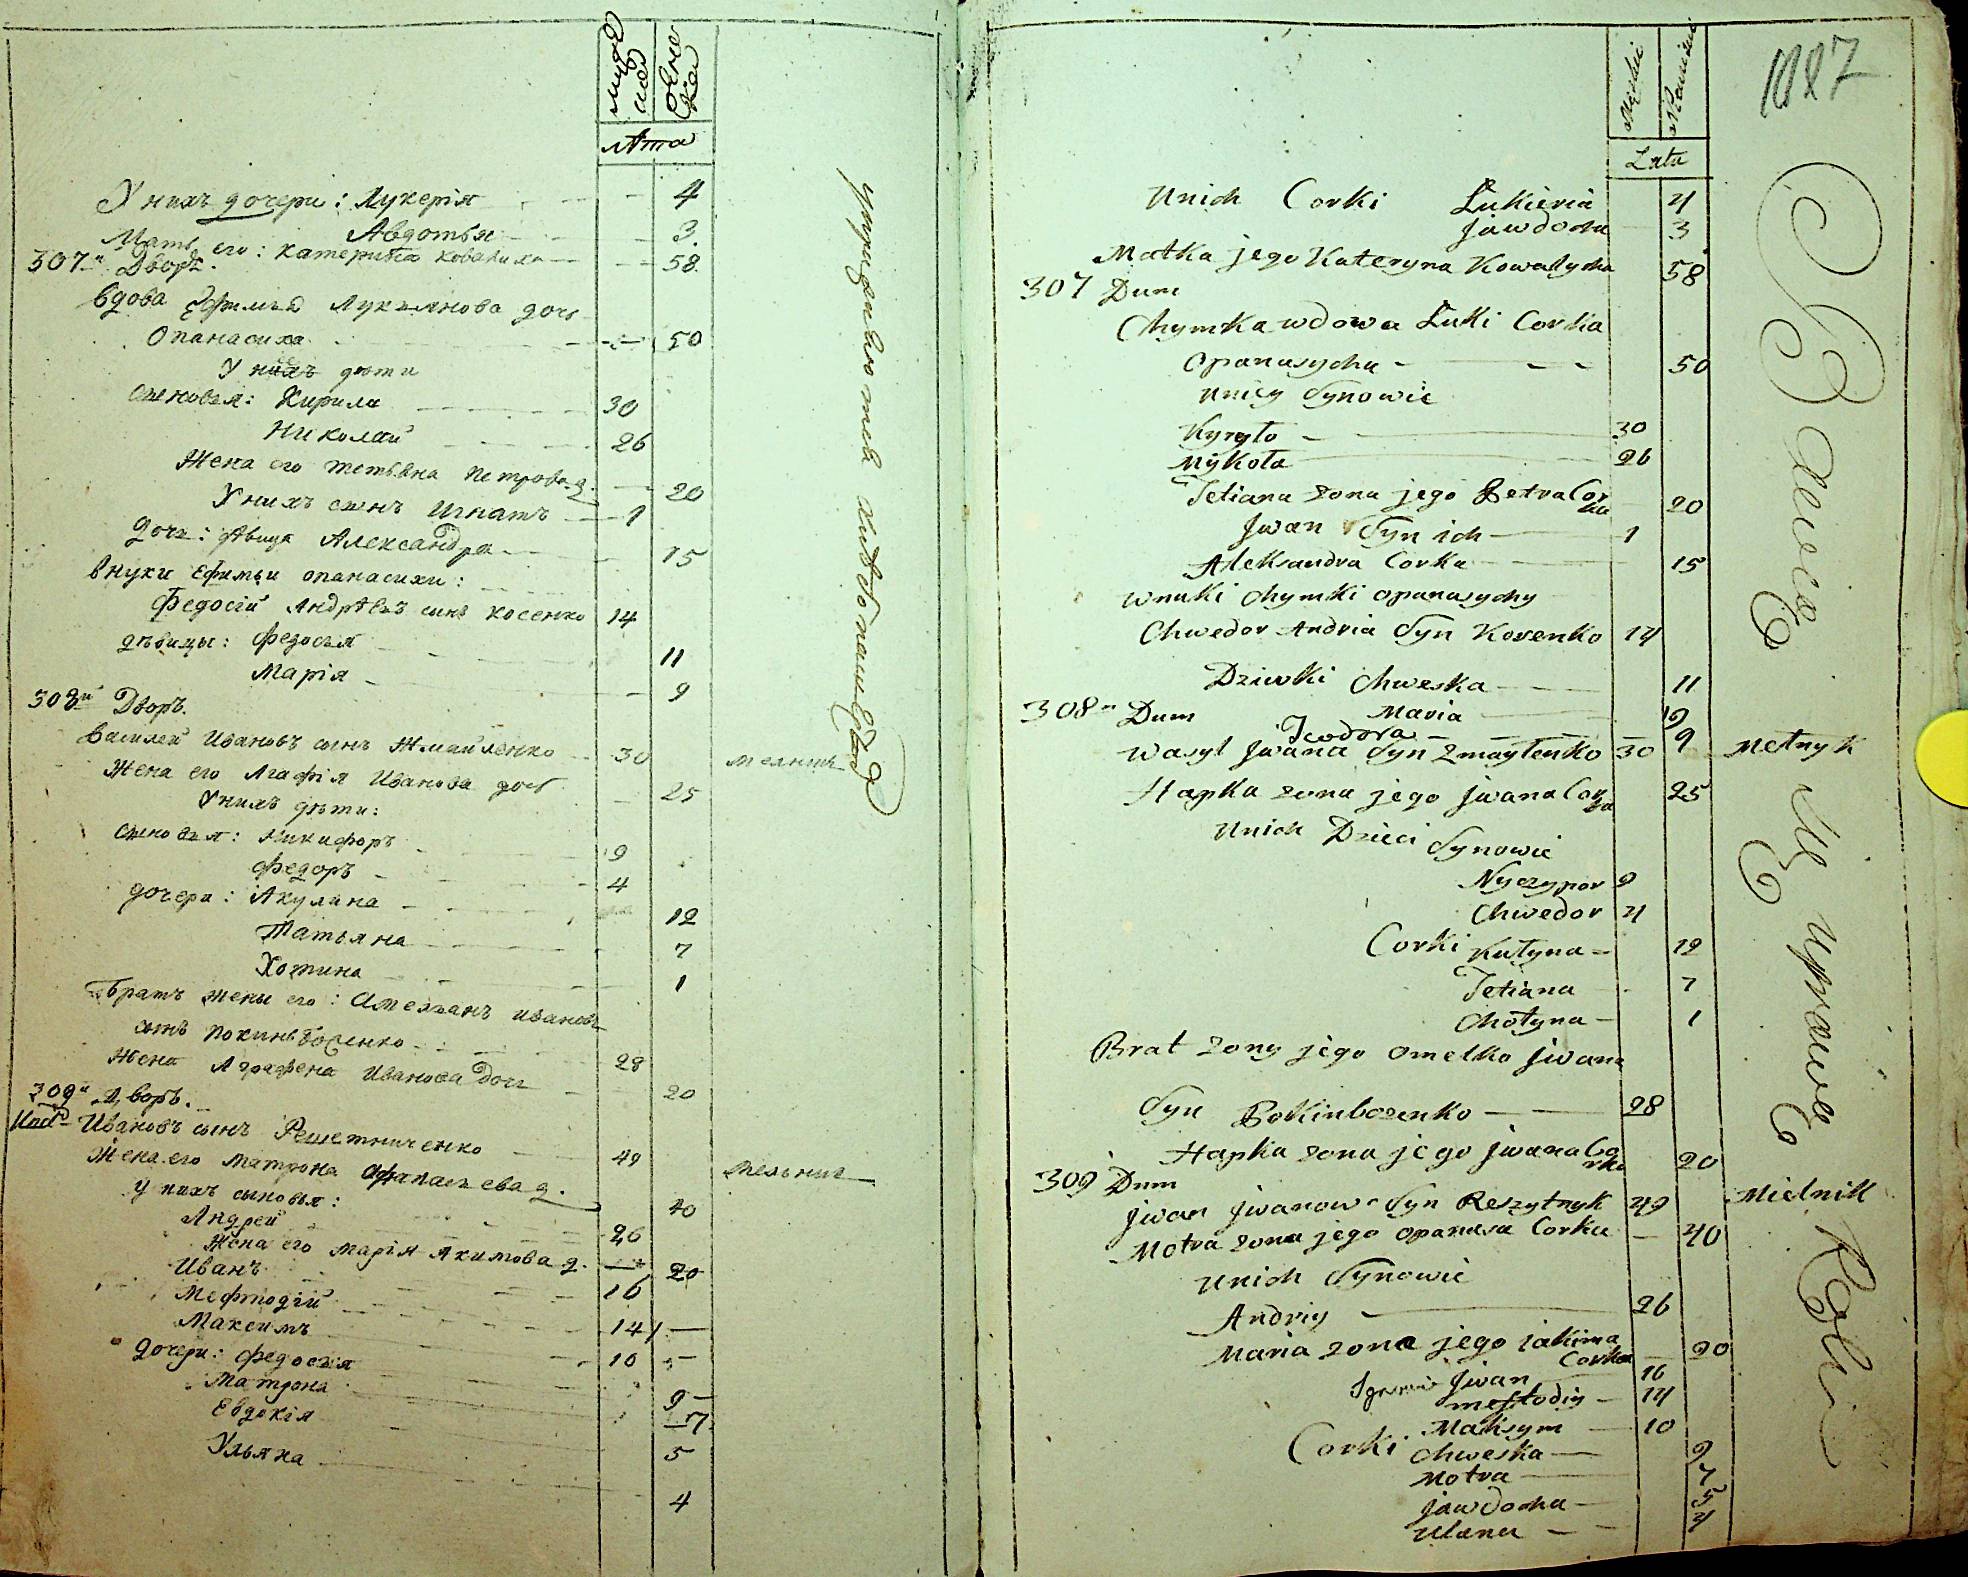 мужеска
женска
лѣта
У нихъ дочери: Лукерія 4
Авдотья 3.
Мать его: катерина ковалиха 58.
307й Дворъ.
вдова Ефимья Лукъянова дочь
Опанасиха 50
У нихъ дѣти
сыновья: Кирила 30
Николай 26
Жена его тетьяна петрова д. 20
У нихъ сынъ Игнатъ 1
дочь: дѣвица Александра 15
внуки Ефимьи опанасихи:
Федосій Андрѣевъ сынъ косенко 14
дѣвицы: федосья 11
Марія 9
308й Дворъ.
василей Ивановъ сынъ Жмайленко 30 мелникъ
Жена его Агафія Иванова дочь 25
У нихъ дѣти:
сыновья: Никифоръ 9
федоръ 4
дочери: Акулина 12
Татьяна 7
Хотина 1
Братъ жены его: Омельянъ ивановъ
сынъ покинбосенко 28
жена Аграфена Иванова дочь 20
309й Дворъ.
Ивановъ сынъ Решетниченко 49 мельникъ
Жена его матрона Афанасьева д. 40
у нихъ сыновья:
Андрей 26
Жена его марія Якимова д. 20
Иванъ 16
Мефтодій 14
Максимъ 10
дочери: федосья 9
Матрона 7
Евдокія 5
Ульяна 4
упражняются хлебопашествомъ
1887
Męskie
Żenskie
Lata
Unich Corki Łukieria 4
Jawdocha 3
Matka jego Kateryna Kowalycha 58
307 Dum
Chymka wdowa Łuki Corka
Opanasycha 50
Unicy Synowie
Kyryło 30
Mykoła 26
Tetiana zona jego Petra Corka 20
Jwan Syn ich 1
Aleksandra Corka 15
wnuki Chymki Opanasychy
Chwedor Andria Syn Kosenko 14
Dziewki Chweska 11
Maria 9
308 Dum
Teodora 9
Wasyl Jwana Syn Zmaylenko 30 Melnyk
Hapka zona jego Jwana Corka 25
Unich Dzieci Synowie
Nyczypor 9
Chwedor 4
Corki Kułyna 12
Tetiana 7
Chotyna 1
Brat zony jego Omelko Jwana
Syn Pokinbosenko 28
Hapka zona jego Jwana Corka 20
309 Dum
Jwan Jwanow Syn Reszytnyk 49 Mielnik
Motra zona jego Opanasa Corka 40
Unich Synowie
Andriy 26
Maria zona jego Jakima Corka 20
Jwan 16
Meftodiy 14
Maksym 10
Corki Chweska 9
Motra 7
Jawdocha 5
Ulana 4
uprawę Roli